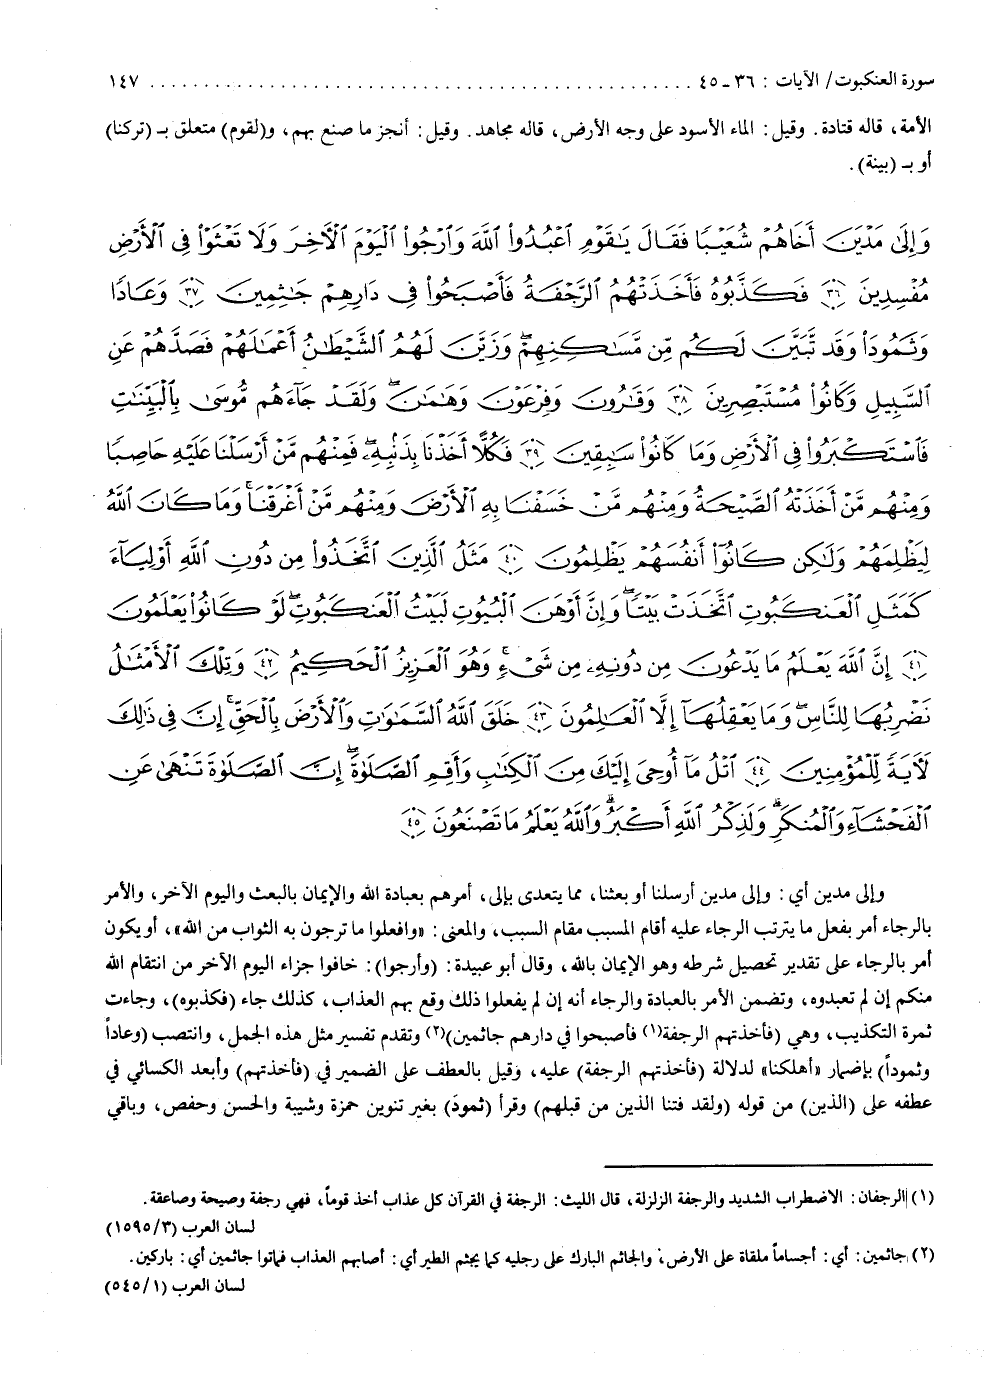 سورة العنكبوت/ الآيات : ٣٦ ـ ٤٥ ........................................................ ١٤٧
الأمة، قاله قتادة. وقيل: الماء الأسود على وجه الأرض، قاله مجاهد. وقيل: أنجز ما صنع بهم، و(لقوم) متعلق بـ (تركنا)
أو بـ (بينة).
وَإِلَىٰ مَدْيَنَ أَخَاهُمْ شُعَيْبًا فَقَالَ يَٰقَوْمِ ٱعْبُدُوا۟ ٱللَّهَ وَٱرْجُوا۟ ٱلْيَوْمَ ٱلْأَخِرَ وَلَا تَعْثَوْا۟ فِى ٱلْأَرْضِ
مُفْسِدِينَ ﴿٣٦﴾ فَكَذَّبُوهُ فَأَخَذَتْهُمُ ٱلرَّجْفَةُ فَأَصْبَحُوا۟ فِى دَارِهِمْ جَٰثِمِينَ ﴿٣٧﴾ وَعَادًا
وَثَمُودَا۟ وَقَد تَّبَيَّنَ لَكُم مِّن مَّسَٰكِنِهِمْ ۖ وَزَيَّنَ لَهُمُ ٱلشَّيْطَٰنُ أَعْمَٰلَهُمْ فَصَدَّهُمْ عَنِ
ٱلسَّبِيلِ وَكَانُوا۟ مُسْتَبْصِرِينَ ﴿٣٨﴾ وَقَٰرُونَ وَفِرْعَوْنَ وَهَٰمَٰنَ ۖ وَلَقَدْ جَآءَهُم مُّوسَىٰ بِٱلْبَيِّنَٰتِ
فَٱسْتَكْبَرُوا۟ فِى ٱلْأَرْضِ وَمَا كَانُوا۟ سَٰبِقِينَ ﴿٣٩﴾ فَكُلًّا أَخَذْنَا بِذَنۢبِهِۦ ۖ فَمِنْهُم مَّنْ أَرْسَلْنَا عَلَيْهِ حَاصِبًا
وَمِنْهُم مَّنْ أَخَذَتْهُ ٱلصَّيْحَةُ وَمِنْهُم مَّنْ خَسَفْنَا بِهِ ٱلْأَرْضَ وَمِنْهُم مَّنْ أَغْرَقْنَا ۚ وَمَا كَانَ ٱللَّهُ
لِيَظْلِمَهُمْ وَلَٰكِن كَانُوٓا۟ أَنفُسَهُمْ يَظْلِمُونَ ﴿٤٠﴾ مَثَلُ ٱلَّذِينَ ٱتَّخَذُوا۟ مِن دُونِ ٱللَّهِ أَوْلِيَآءَ
كَمَثَلِ ٱلْعَنكَبُوتِ ٱتَّخَذَتْ بَيْتًا ۖ وَإِنَّ أَوْهَنَ ٱلْبُيُوتِ لَبَيْتُ ٱلْعَنكَبُوتِ ۖ لَوْ كَانُوا۟ يَعْلَمُونَ
﴿٤١﴾ إِنَّ ٱللَّهَ يَعْلَمُ مَا يَدْعُونَ مِن دُونِهِۦ مِن شَىْءٍ ۚ وَهُوَ ٱلْعَزِيزُ ٱلْحَكِيمُ ﴿٤٢﴾ وَتِلْكَ ٱلْأَمْثَٰلُ
نَضْرِبُهَا لِلنَّاسِ ۖ وَمَا يَعْقِلُهَآ إِلَّا ٱلْعَٰلِمُونَ ﴿٤٣﴾ خَلَقَ ٱللَّهُ ٱلسَّمَٰوَٰتِ وَٱلْأَرْضَ بِٱلْحَقِّ ۚ إِنَّ فِى ذَٰلِكَ
لَأَيَةً لِّلْمُؤْمِنِينَ ﴿٤٤﴾ ٱتْلُ مَآ أُوحِىَ إِلَيْكَ مِنَ ٱلْكِتَٰبِ وَأَقِمِ ٱلصَّلَوٰةَ ۖ إِنَّ ٱلصَّلَوٰةَ تَنْهَىٰ عَنِ
ٱلْفَحْشَآءِ وَٱلْمُنكَرِ ۗ وَلَذِكْرُ ٱللَّهِ أَكْبَرُ ۗ وَٱللَّهُ يَعْلَمُ مَا تَصْنَعُونَ ﴿٤٥﴾
وإلى مدين أي: وإلى مدين أرسلنا أو بعثنا، مما يتعدى بإلى، أمرهم بعبادة الله والإيمان بالبعث واليوم الآخر، والأمر
بالرجاء أمر بفعل ما يترتب الرجاء عليه أقام المسبب مقام السبب، والمعنى: «وافعلوا ما ترجون به الثواب من الله»، أو يكون
أمر بالرجاء على تقدير تحصيل شرطه وهو الإيمان بالله، وقال أبو عبيدة: (وأرجوا): خافوا جزاء اليوم الآخر من انتقام الله
منكم إن لم تعبدوه، وتضمن الأمر بالعبادة والرجاء أنه إن لم يفعلوا ذلك وقع بهم العذاب، كذلك جاء (فكذبوه)، وجاءت
ثمرة التكذيب، وهي (فأخذتهم الرجفة(١) فأصبحوا في دارهم جاثمين)(٢) وتقدم تفسير مثل هذه الجمل، وانتصب (وعاداً
وثموداً) بإضمار «أهلكنا» لدلالة (فأخذتهم الرجفة) عليه، وقيل بالعطف على الضمير في (فأخذتهم) وأبعد الكسائي في
عطفه على (الذين) من قوله (ولقد فتنا الذين من قبلهم) وقرأ (ثمودَ) بغير تنوين حمزة وشيبة والحسن وحفص، وباقي
(١) الرجفان: الاضطراب الشديد والرجفة الزلزلة، قال الليث: الرجفة في القرآن كل عذاب أخذ قوماً، فهي رجفة وصيحة وصاعقة.
لسان العرب (٣/ ١٥٩٥)
(٢) جاثمين: أي: أجساماً ملقاة على الأرض، والجاثم البارك على رجليه كما يجثم الطير أي: أصابهم العذاب فماتوا جاثمين أي: باركين.
لسان العرب (١/ ٥٤٥)